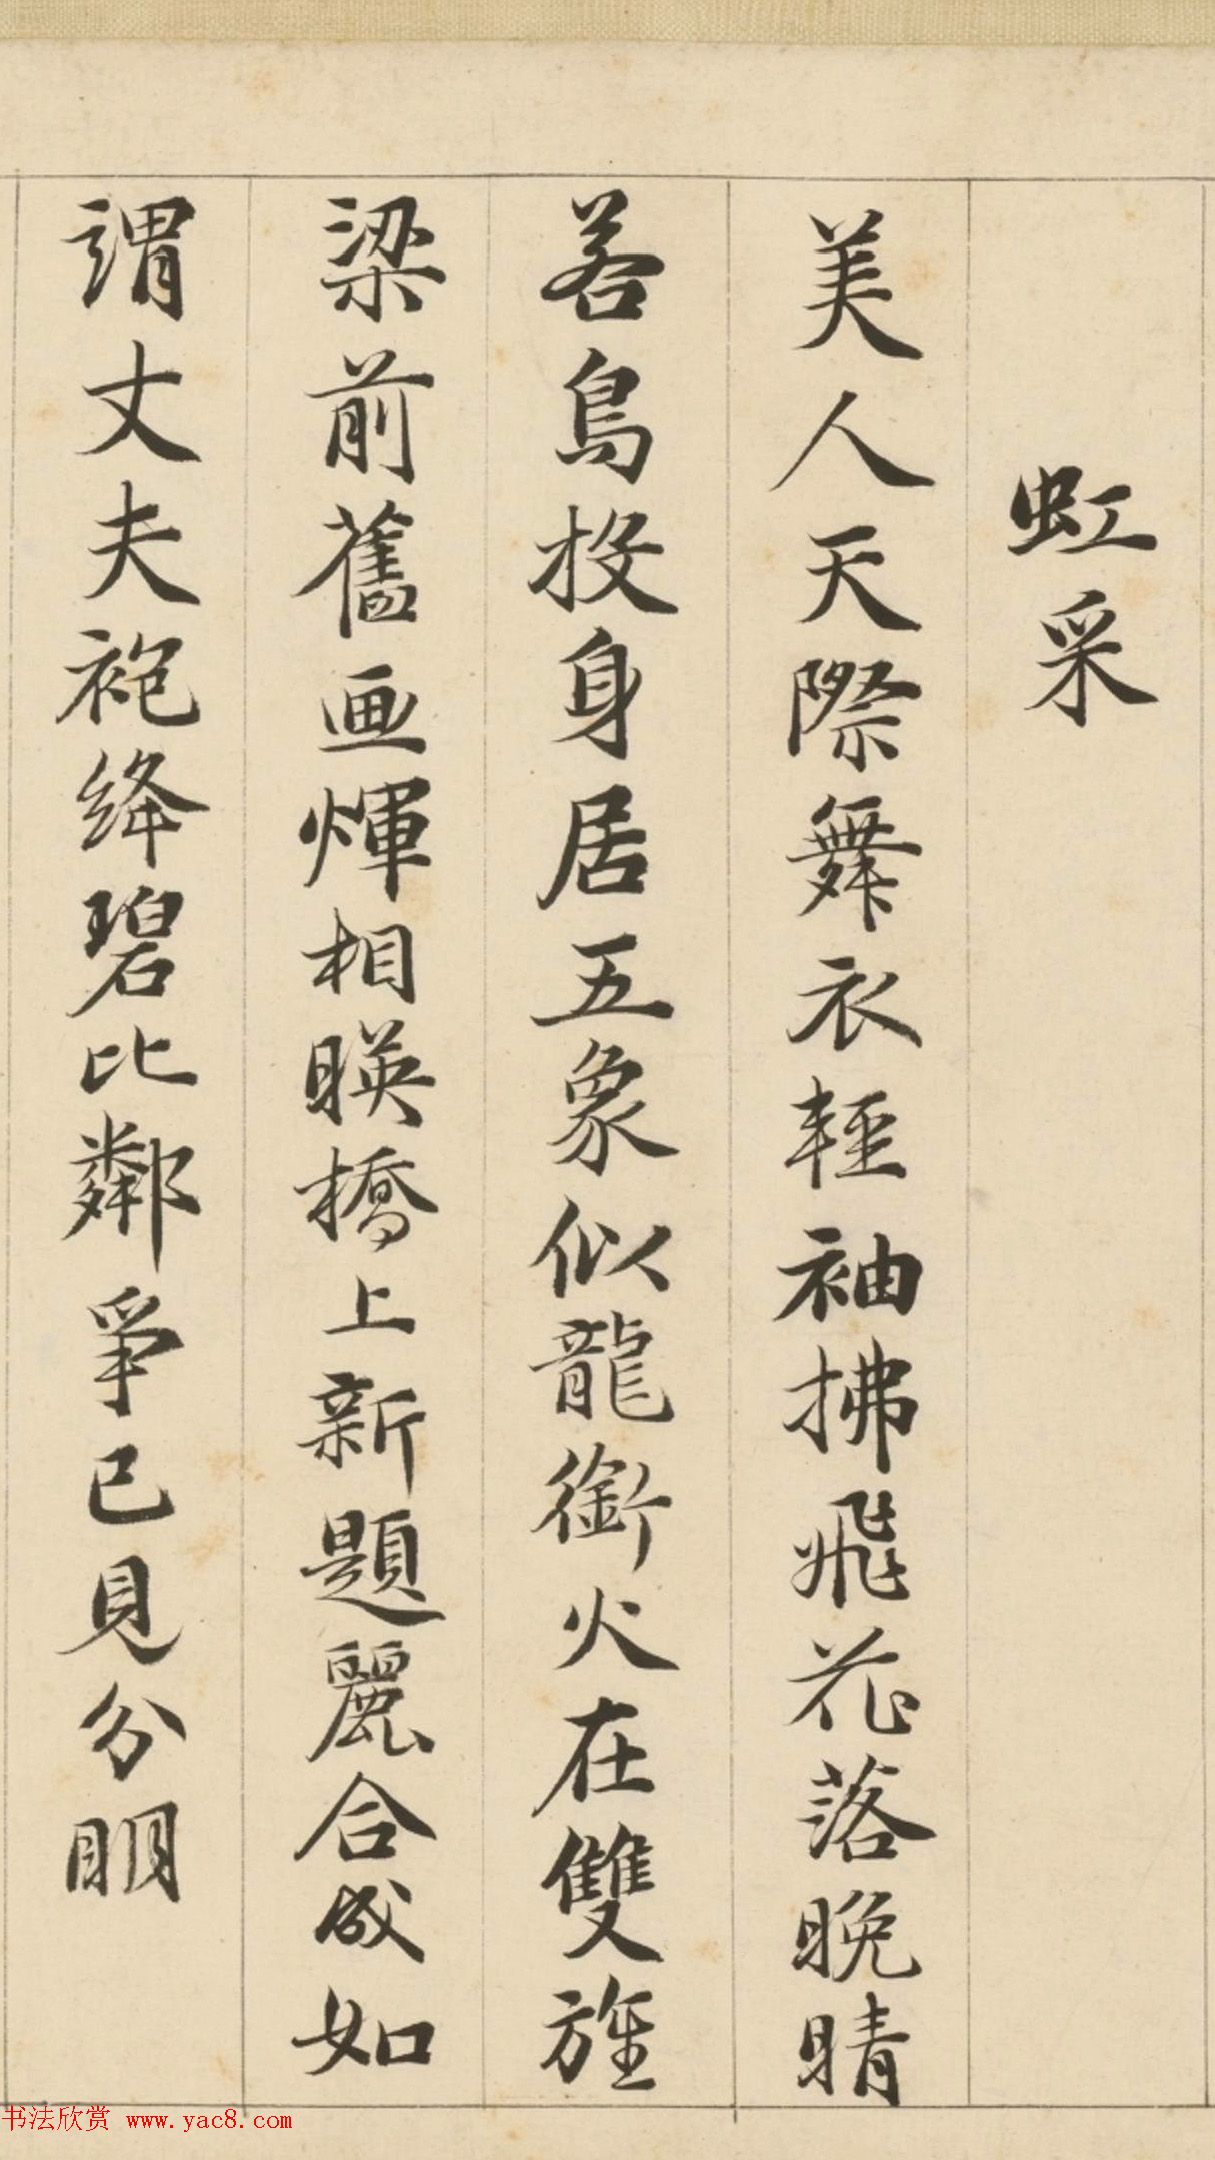 虹采
美人天際舞衣輕袖拂飛花落晚晴
若鳥投身居五象似龍銜火在雙旌
梁前舊画煇相暎橋上新題麗合成如
謂丈夫袍絳碧比鄰爭已見分明
书法欣赏 www.yac8.com